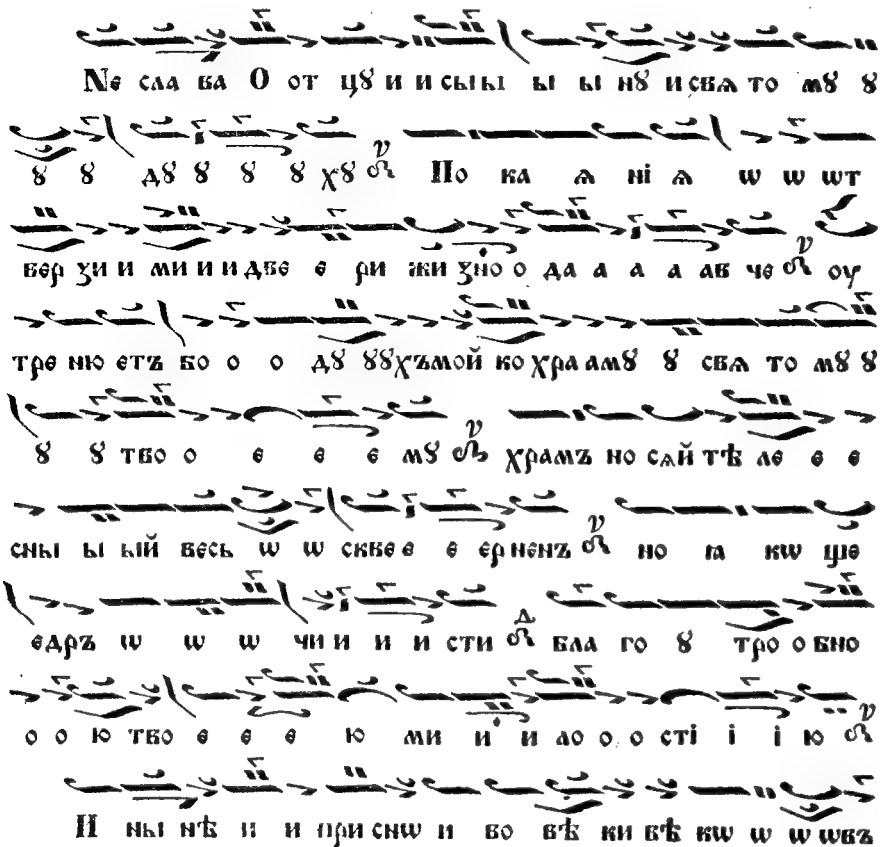 Не сла ва О от цꙋ и и сы ы ы ы нꙋ и свѧ то мꙋ ꙋ
ꙋ ꙋ дꙋ ꙋ ꙋ ꙋ хꙋ По ка ѧ ні ѧ ѡ ѡ ѡт
вер ꙁи и ми и и две е ри жи ꙁно о да а а а ав че оу
тре ню етъ бо о о дꙋ ꙋꙋхъ мой ко хра амꙋ ꙋ свѧ то мꙋ ꙋ
ꙋ ꙋ тво о е е е мꙋ храмъ но сѧй тѣ ле е е
сны ы ый весь ѡ ѡ скве е е ер ненъ но ꙗ кѡ ще
едръ ѡ ѡ ѡ чи и и и сти бла го ꙋ тро о бно
о о ю тво е е е ю ми и и ло о о сті і і ю
И ны нѣ и и при снѡ и во вѣ ки вѣ кѡ ѡ ѡ ѡвъ